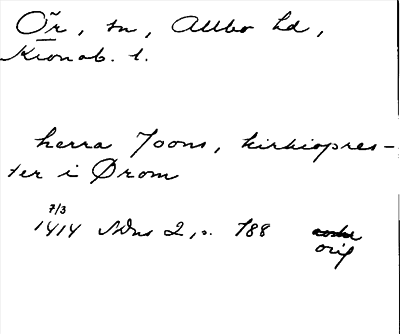 Ör, sn, Allbo hd,
Kronob. l.
herra Joons, kirkiopres-
ter i Ørom
7/3
1414 SDns 2, s. 788
orig